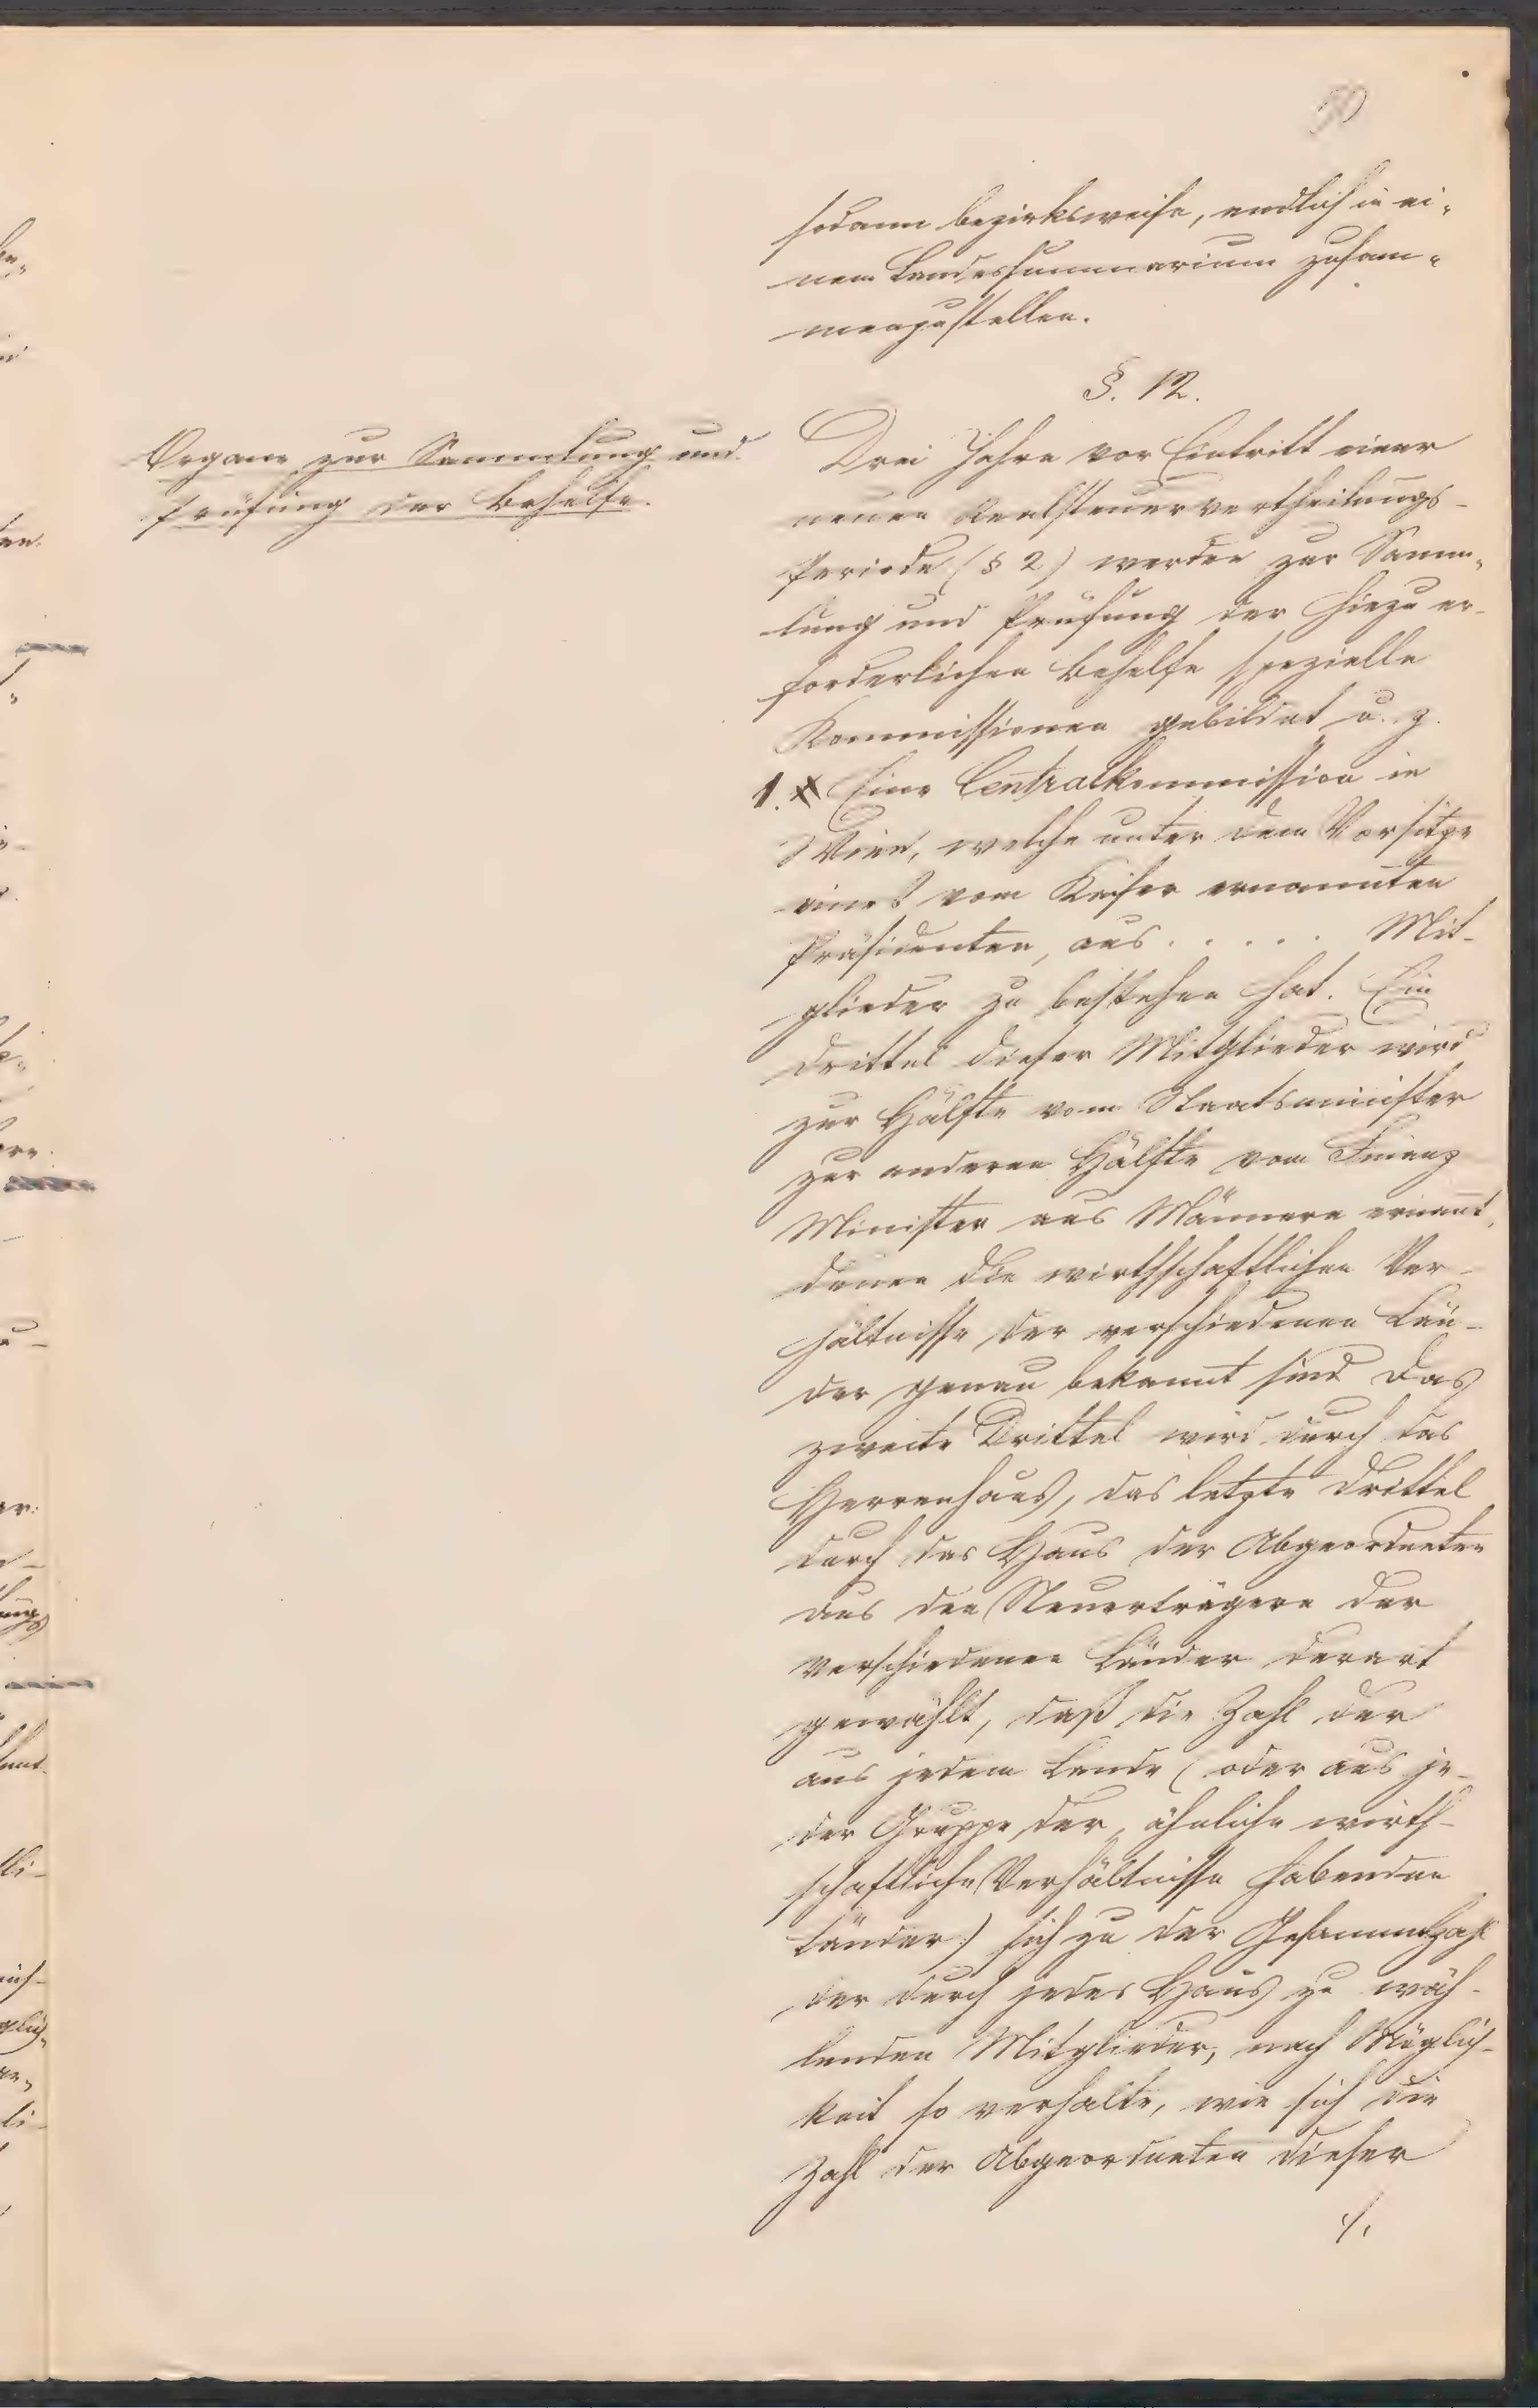 sodann bezirksweise, endlich in ei-
nem Landessummarium zusam-
menzustellen.
§. 12.
Organe zur Sammlung und
Prüfung der Behelfe.
Drei Jahre vor Eintritt einer
neuen Realsteuervertheilungs-
Periode (§ 2) werden zur Samm-
lung und Prüfung der hiezu er-
forderlichen Behelfe spezielle
Kommissionen gebildet u. z.
1. Eine Centralkommission in
Wien, welche unter dem Vorsitze
eines vom Kaiser ernannten
Präsidenten, aus . . . . . Mit-
glieder zu bestehen hat. Ein
Drittel dieser Mitglieder wird
zur Hälfte vom Staatsminister
zur anderen Hälfte vom Finanz
Minister aus Männern ernannt,
denen die wirthschaftlichen Ver-
hältnisse der verschiedenen Län-
der genau bekannt sind das
zweite Drittel wird durch das
Herrenhaus, das letzte Drittel
durch das Haus der Abgeordneten
aus den Steuerträgern der
verschiedenen Länder derart
gewählt, daß die Zahl der
aus jedem Lande (oder aus je-
der Gruppe der, ähnliche wirth-
schaftliche Verhältnisse habenden
Länder) sich zu der Gesammtzahl
der durch jedes Haus zu wäh-
lenden Mitglieder, nach Möglich-
keit so verhalte, wie sich die
Zahl der Abgeordneten dieser
./.